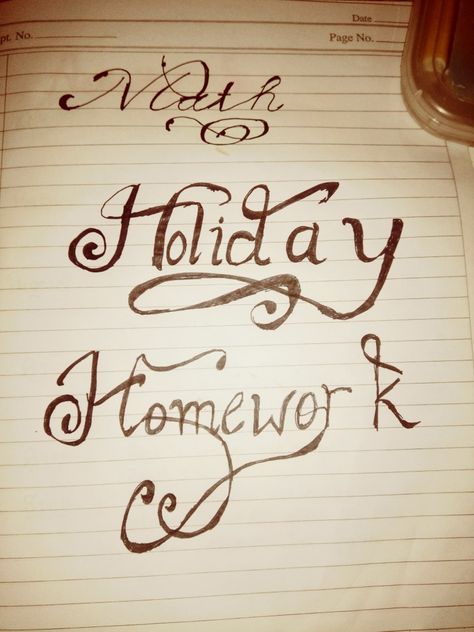 Date
pt. No.
Page No.
Math
Holiday
Homework